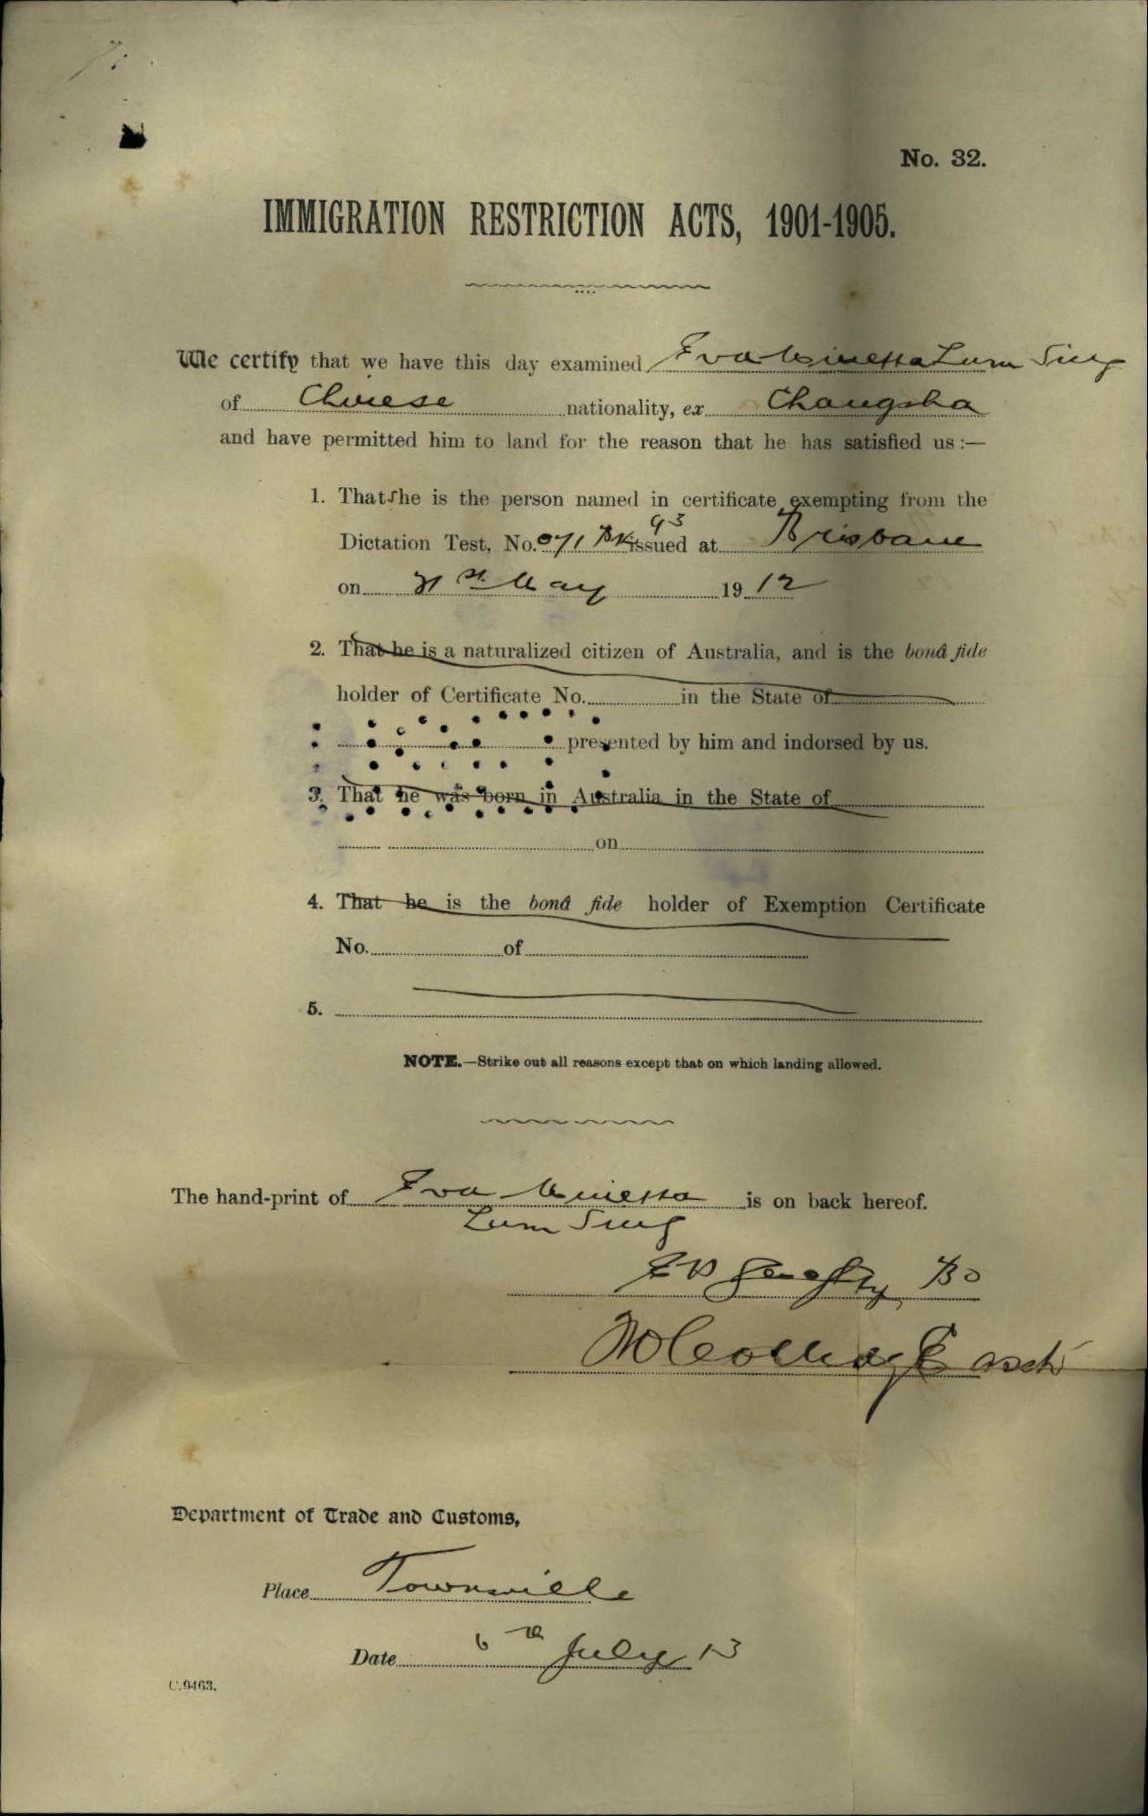 No. 32.
IMMIGRATION RESTRICTION ACTS, 1901-1905.
We certify that we have this day examined Eva Minetta Lum Sing
of Chinese nationality, ex Changsha
and have permitted him to land for the reason that he has satisfied us :—
1. That she is the person named in certificate exempting from the
93
Dictation Test, No. 071 Bk issued at Brisbane
on 31st May 1912
2. That he is a naturalized citizen of Australia, and is the bonâ fide
holder of Certificate No. in the State of
presented by him and indorsed by us.
3. That he was born in Australia in the State of
on
4. That he is the bonâ fide holder of Exemption Certificate
No. of
5.
NOTE.—Strike out all reasons except that on which landing allowed.
The hand-print of Eva Minetta is on back hereof.
Lum Sing
Department of Trade and Customs,
Place Townsville
Date 6th July 13
C.9463.